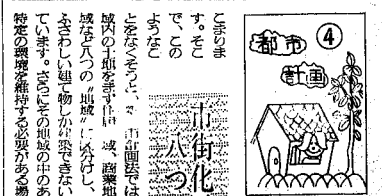 ④
都市
計画
市街化
八つ
こまりま
す。そこ
で、この
ようなこ
とをなくそうと、市計画法では
域内の土地をまず住域、商業地
域など八つの〝地域〟に区分けし、
ふさわしい建て物しか建築できない
ています。さらにその地域の中のあ
特定の環境を維持する必要がある場